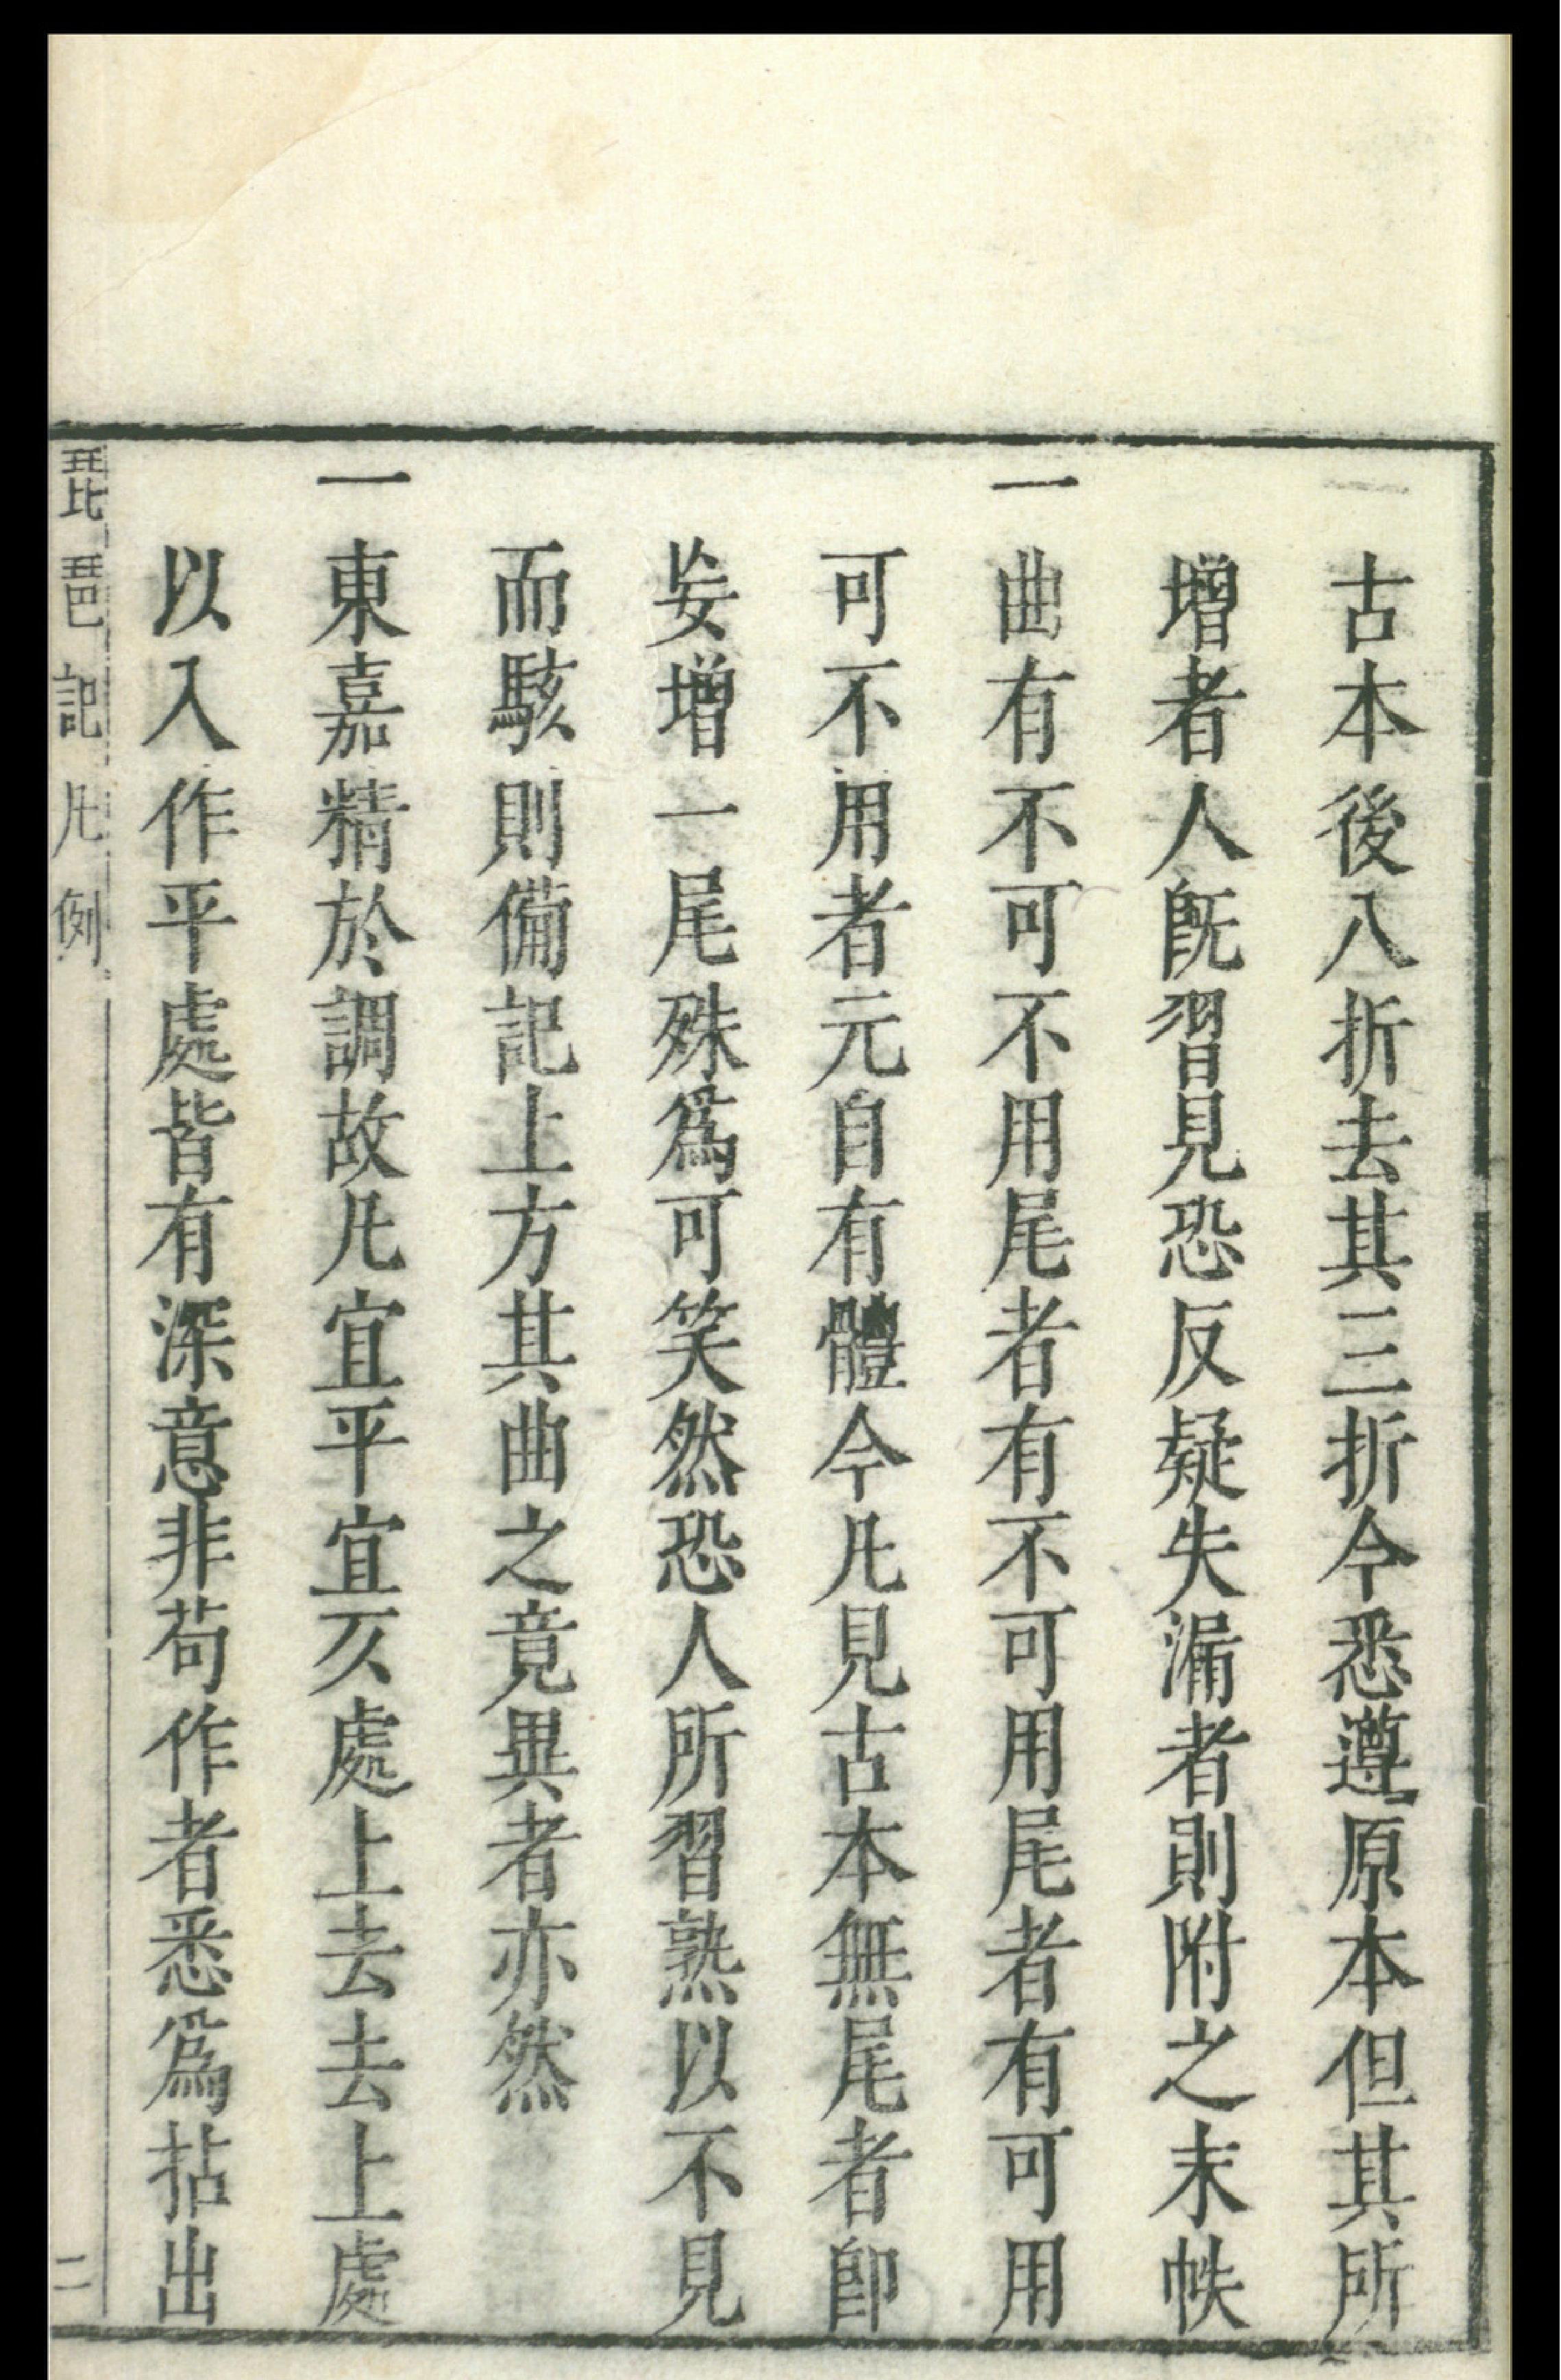 一古本後八折去其三折今悉遵原本但其所
增者人既習見恐反疑失漏者則附之末帙
一曲有不可不用尾者有不可用尾者有可用
可不用者元自有體今凡見古本無尾者卽
妄增一尾殊爲可笑然恐人所習熟以不見
而駭則備記上方其曲之竟異者亦然
一東嘉精於調故凡宜平宜仄處上去去上處
以入作平處皆有深意非苟作者悉爲拈出
琵琶記凡例 二